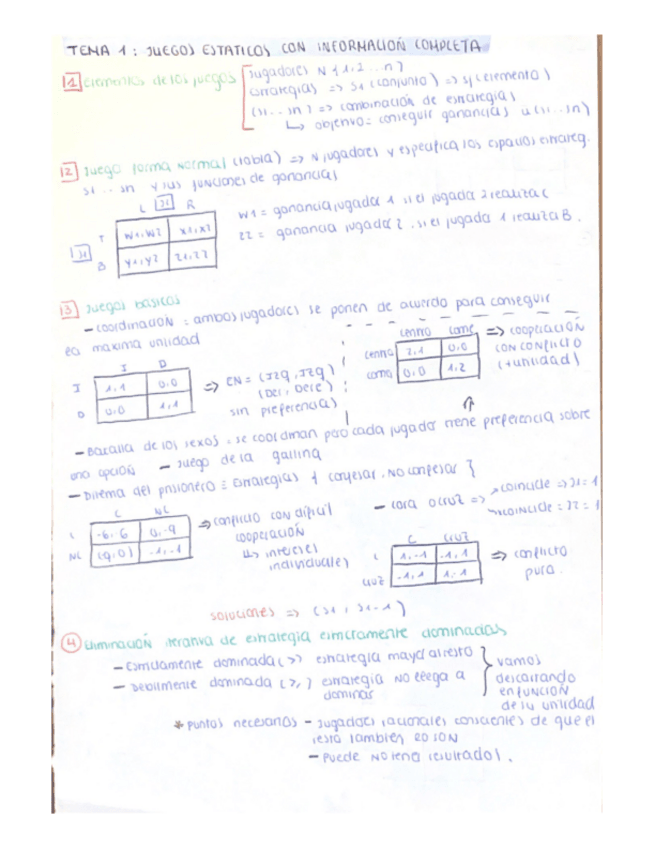 TEMA 1: JUEGOS ESTATICOS CON INFORMACION COMPLETA
1 elementos de los juegos
Jugadores N {1,2...n}
estrategias => Si (conjunto) => si (elemento)
(s1...sn) => combinación de estrategias
↳ objetivo = conseguir ganancias u(s1...sn)
2 Juego forma normal (tabla) => N jugadores y especifica los espacios estrateg.
S1...Sn y sus funciones de ganancias
L J2 R
T W1,W2 X1,X2
J1
B Y1,Y2 Z1,Z2
W1 = ganancia jugador 1 si el jugador 2 realiza L
Z2 = ganancia jugador 2 si el jugador 1 realiza B.
3 Juegos básicos
- coordinación = ambos jugadores se ponen de acuerdo para conseguir
la máxima utilidad
I D
I 1,1 0,0
D 0,0 1,1
=> EN = (Izq, Izq)
(Der, Dere)
sin preferencias
cenna come
cenna 2,1 0,0
come 0,0 1,2
=> cooperación
con conflicto
(+utilidad)
- Batalla de los sexos = se coordinan pero cada jugador tiene preferencia sobre
una opción - Juego de la gallina
- Dilema del prisionero = estrategias { confesar, no confesar }
C NC
C -6,-6 0,-9
NC (-9,0) -1,-1
=> conflicto con difícil
cooperación
↳ intereses
individuales
- cara o cruz => coincide => J1 = 1
no coincide = J2 = 1
C cruz
C 1,-1 -1,1
cruz -1,1 1,-1
=> conflicto
puro.
soluciones => (s1, s1-1)
4 Eliminación iterativa de estrategia estrictamente dominadas
- Estrictamente dominada (>) estrategia mayor al resto
- Debilmente dominada (≥) estrategia no llega a
dominar
vamos
descartando
en función
de su utilidad
* puntos necesarios - Jugadores racionales conscientes de que el
resto también lo son
- Puede no tener resultados.